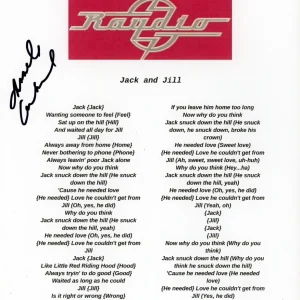 Raydio
Jack and Jill
Jack (Jack)
Wanting someone to feel (Feel)
Sat up on the hill (Hill)
And waited all day for Jill
Jill (Jill)
Always away from home (Home)
Never bothering to phone (Phone)
Always leavin' poor Jack alone
Now why do you think
Jack snuck down the hill (He snuck
down the hill)
'Cause he needed love
(He needed) Love he couldn't get from
Jill (Oh, yes, he did)
Why do you think
Jack snuck down the hill (He snuck
down the hill, yeah)
He needed love (Oh, yes, he did)
(He needed) Love he couldn't get from
Jill
Jack (Jack)
Like Little Red Riding Hood (Hood)
Always tryin' to do good (Good)
Waited as long as he could
Jill (Jill)
Is it right or wrong (Wrong)
If you leave him home too long
Now why do you think
Jack snuck down the hill (He snuck
down, he snuck down, broke his
crown)
He needed love (Sweet love)
(He needed) Love he couldn't get from
Jill (Ah, sweet, sweet love, uh-huh)
Why do you think (Hey...ha)
Jack snuck down the hill (He snuck
down the hill, yeah)
He needed love (Oh, yes, he did)
(He needed) Love he couldn't get from
Jill (Yeah, oh)
(Jack)
(Jill)
(Jack)
(Jill)
Now why do you think (Why do you
think)
Jack snuck down the hill (Why do you
think he snuck down the hill)
'Cause he needed love (He needed
love)
(He needed) Love he couldn't get from
Jill